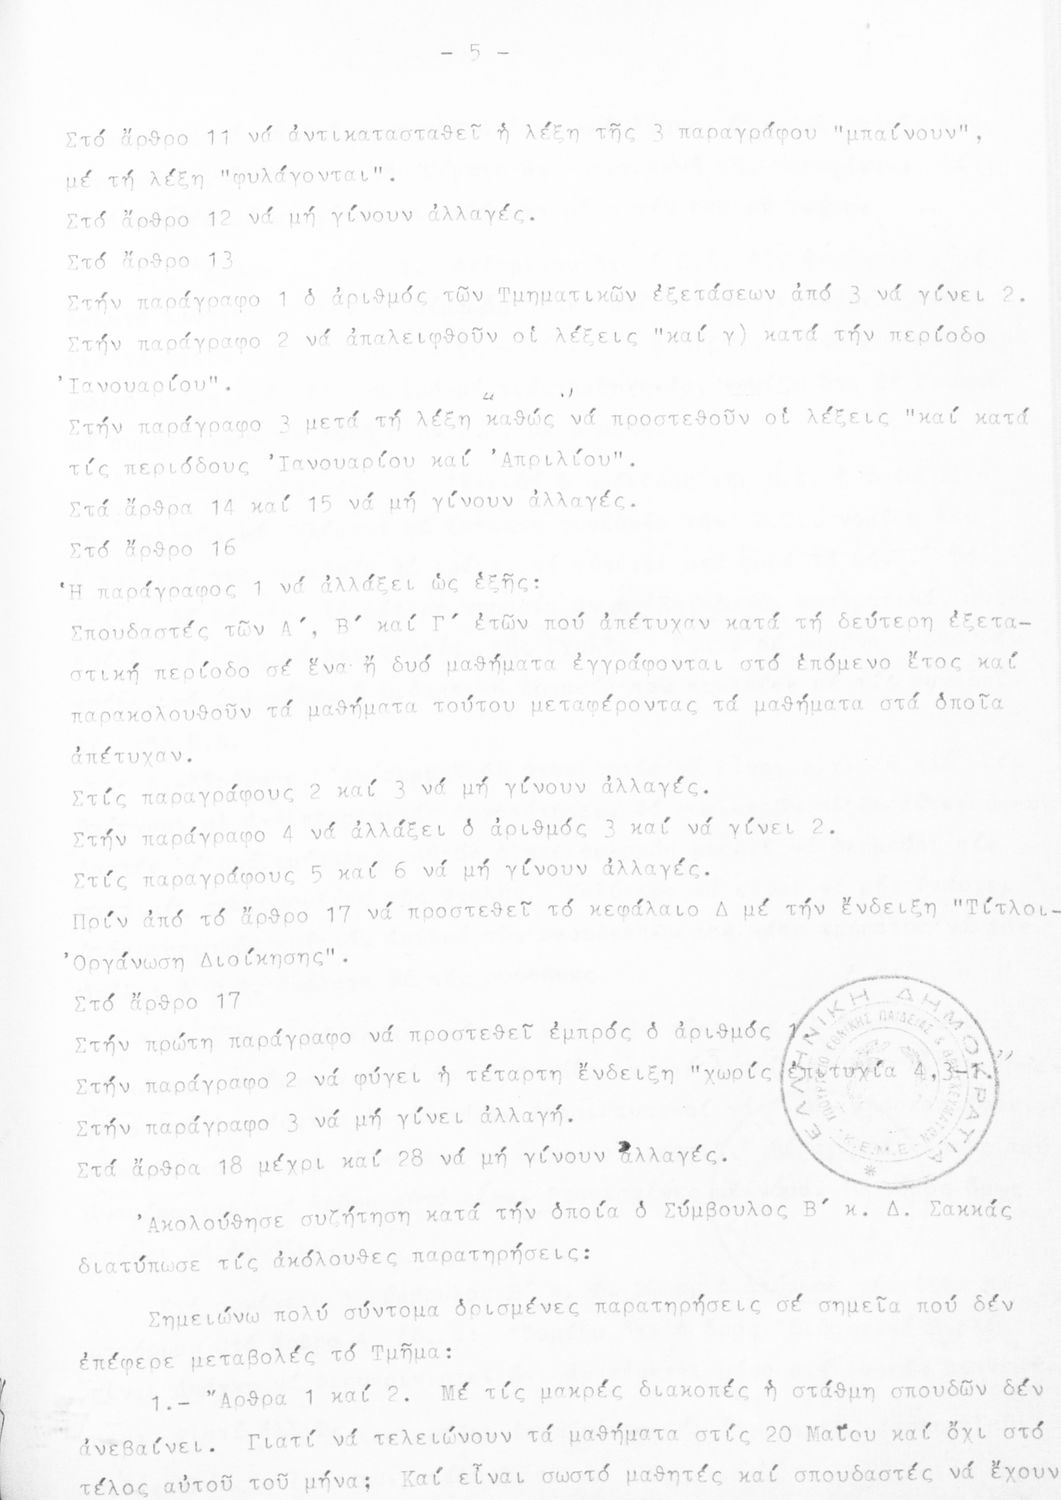 - 5 -
Στό ἄρθρο 11 νά ἀντικατασταθεῖ ἡ λέξη τῆς 3 παραγράφου "μπαίνουν",
μέ τή λέξη "φυλάγονται".
Στό ἄρθρο 12 νά μή γίνουν ἀλλαγές.
Στό ἄρθρο 13
Στήν παράγραφο 1 ὁ ἀριθμός τῶν Τμηματικῶν ἐξετάσεων ἀπό 3 νά γίνει 2.
Στήν παράγραφο 2 νά ἀπαλειφθοῦν οἱ λέξεις "καί γ) κατά τήν περίοδο
Ἰανουαρίου".
Στήν παράγραφο 3 μετά τή λέξη "καθώς" νά προστεθοῦν οἱ λέξεις "καί κατά
τίς περιόδους Ἰανουαρίου καί Ἀπριλίου".
Στά ἄρθρα 14 καί 15 νά μή γίνουν ἀλλαγές.
Στό ἄρθρο 16
Ἡ παράγραφος 1 νά ἀλλάξει ὡς ἑξῆς:
Σπουδαστές τῶν Α΄, Β΄ καί Γ΄ ἐτῶν πού ἀπέτυχαν κατά τή δεύτερη ἐξετα-
στική περίοδο σέ ἕνα ἤ δυό μαθήματα ἐγγράφονται στό ἑπόμενο ἔτος καί
παρακολουθοῦν τά μαθήματα τούτου μεταφέροντας τά μαθήματα στά ὁποῖα
ἀπέτυχαν.
Στίς παραγράφους 2 καί 3 νά μή γίνουν ἀλλαγές.
Στήν παράγραφο 4 νά ἀλλάξει ὁ ἀριθμός 3 καί νά γίνει 2.
Στίς παραγράφους 5 καί 6 νά μή γίνουν ἀλλαγές.
Πρίν ἀπό τό ἄρθρο 17 νά προστεθεῖ τό κεφάλαιο Δ μέ τήν ἔνδειξη "Τίτλοι-
Ὀργάνωση Διοίκησης".
Στό ἄρθρο 17
Στήν πρώτη παράγραφο νά προστεθεῖ ἐμπρός ὁ ἀριθμός 1
Στήν παράγραφο 2 νά φύγει ἡ τέταρτη ἔνδειξη "χωρίς ἐπιτυχία 4,3-1."
Στήν παράγραφο 3 νά μή γίνει ἀλλαγή.
Στά ἄρθρα 18 μέχρι καί 28 νά μή γίνουν ἀλλαγές.
ΕΛΛΗΝΙΚΗ ΔΗΜΟΚΡΑΤΙΑ
ΥΠΟΥΡΓΕΙΟ ΕΘΝΙΚΗΣ ΠΑΙΔΕΙΑΣ & ΘΡΗΣΚΕΥΜΑΤΩΝ
Κ.Ε.Μ.Ε.
Ἀκολούθησε συζήτηση κατά τήν ὁποία ὁ Σύμβουλος Β΄ κ. Δ. Σακκάς
διατύπωσε τίς ἀκόλουθες παρατηρήσεις:
Σημειώνω πολύ σύντομα ὁρισμένες παρατηρήσεις σέ σημεῖα πού δέν
ἐπέφερε μεταβολές τό Τμῆμα:
1.- Ἄρθρα 1 καί 2. Μέ τίς μακρές διακοπές ἡ στάθμη σπουδῶν δέν
ἀνεβαίνει. Γιατί νά τελειώνουν τά μαθήματα στίς 20 Μαΐου καί ὄχι στό
τέλος αὐτοῦ τοῦ μήνα; Καί εἶναι σωστό μαθητές καί σπουδαστές νά ἔχουν